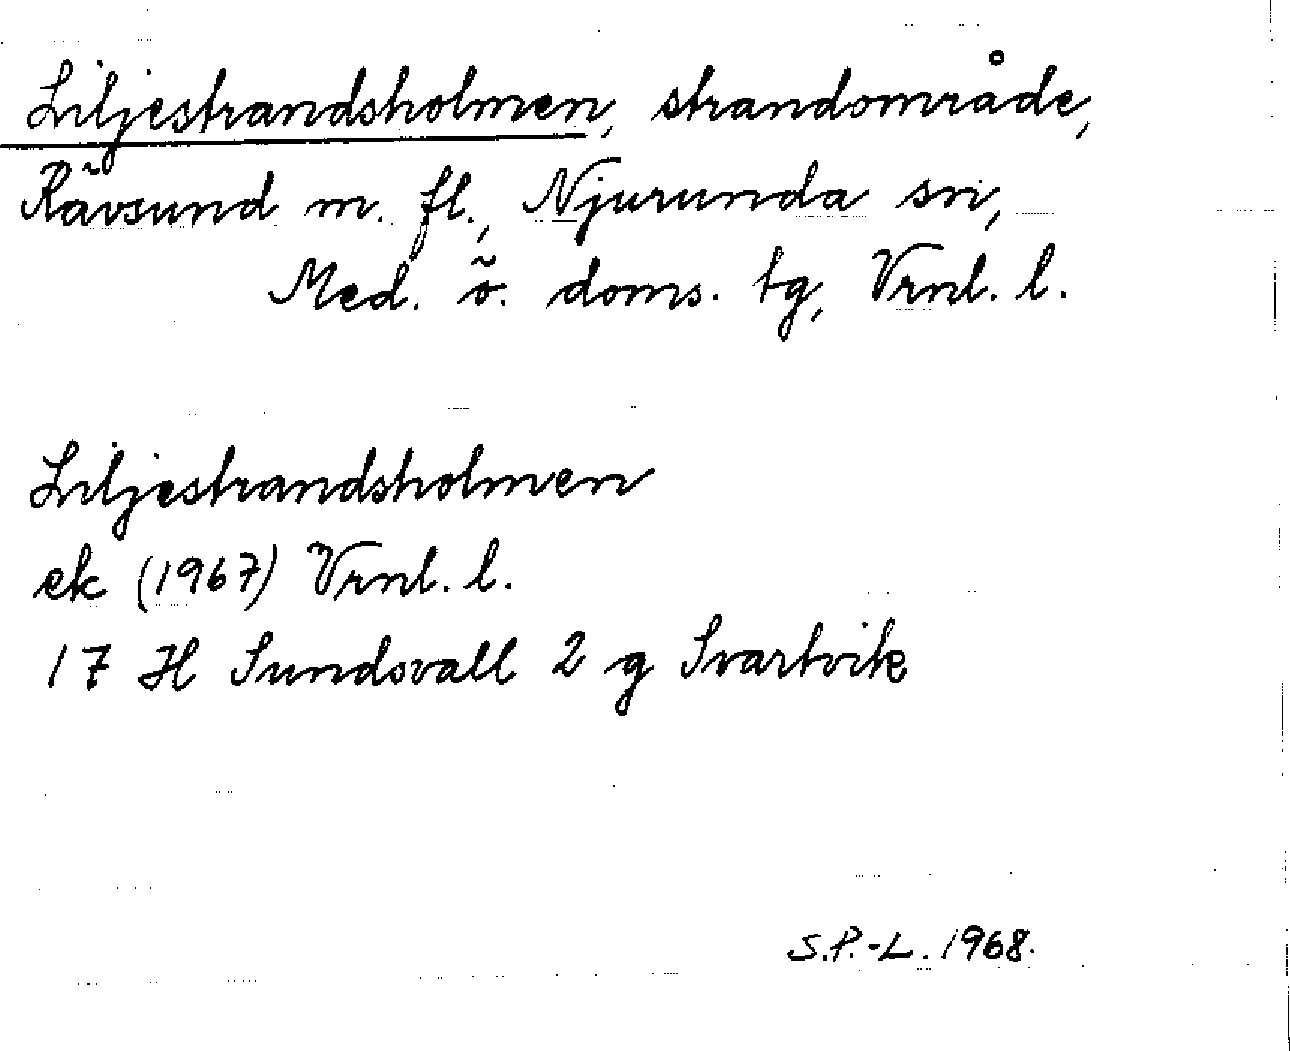 Liljestrandsholmen, strandområde,
Rävsund m. fl., Njurunda sn,
Med. ö. doms. tg, Vrnl. l.
Liljestrandsholmen
ek (1967) Vrnl. l.
17 H Sundsvall 2 g Svartvik
S.P.-L. 1968.